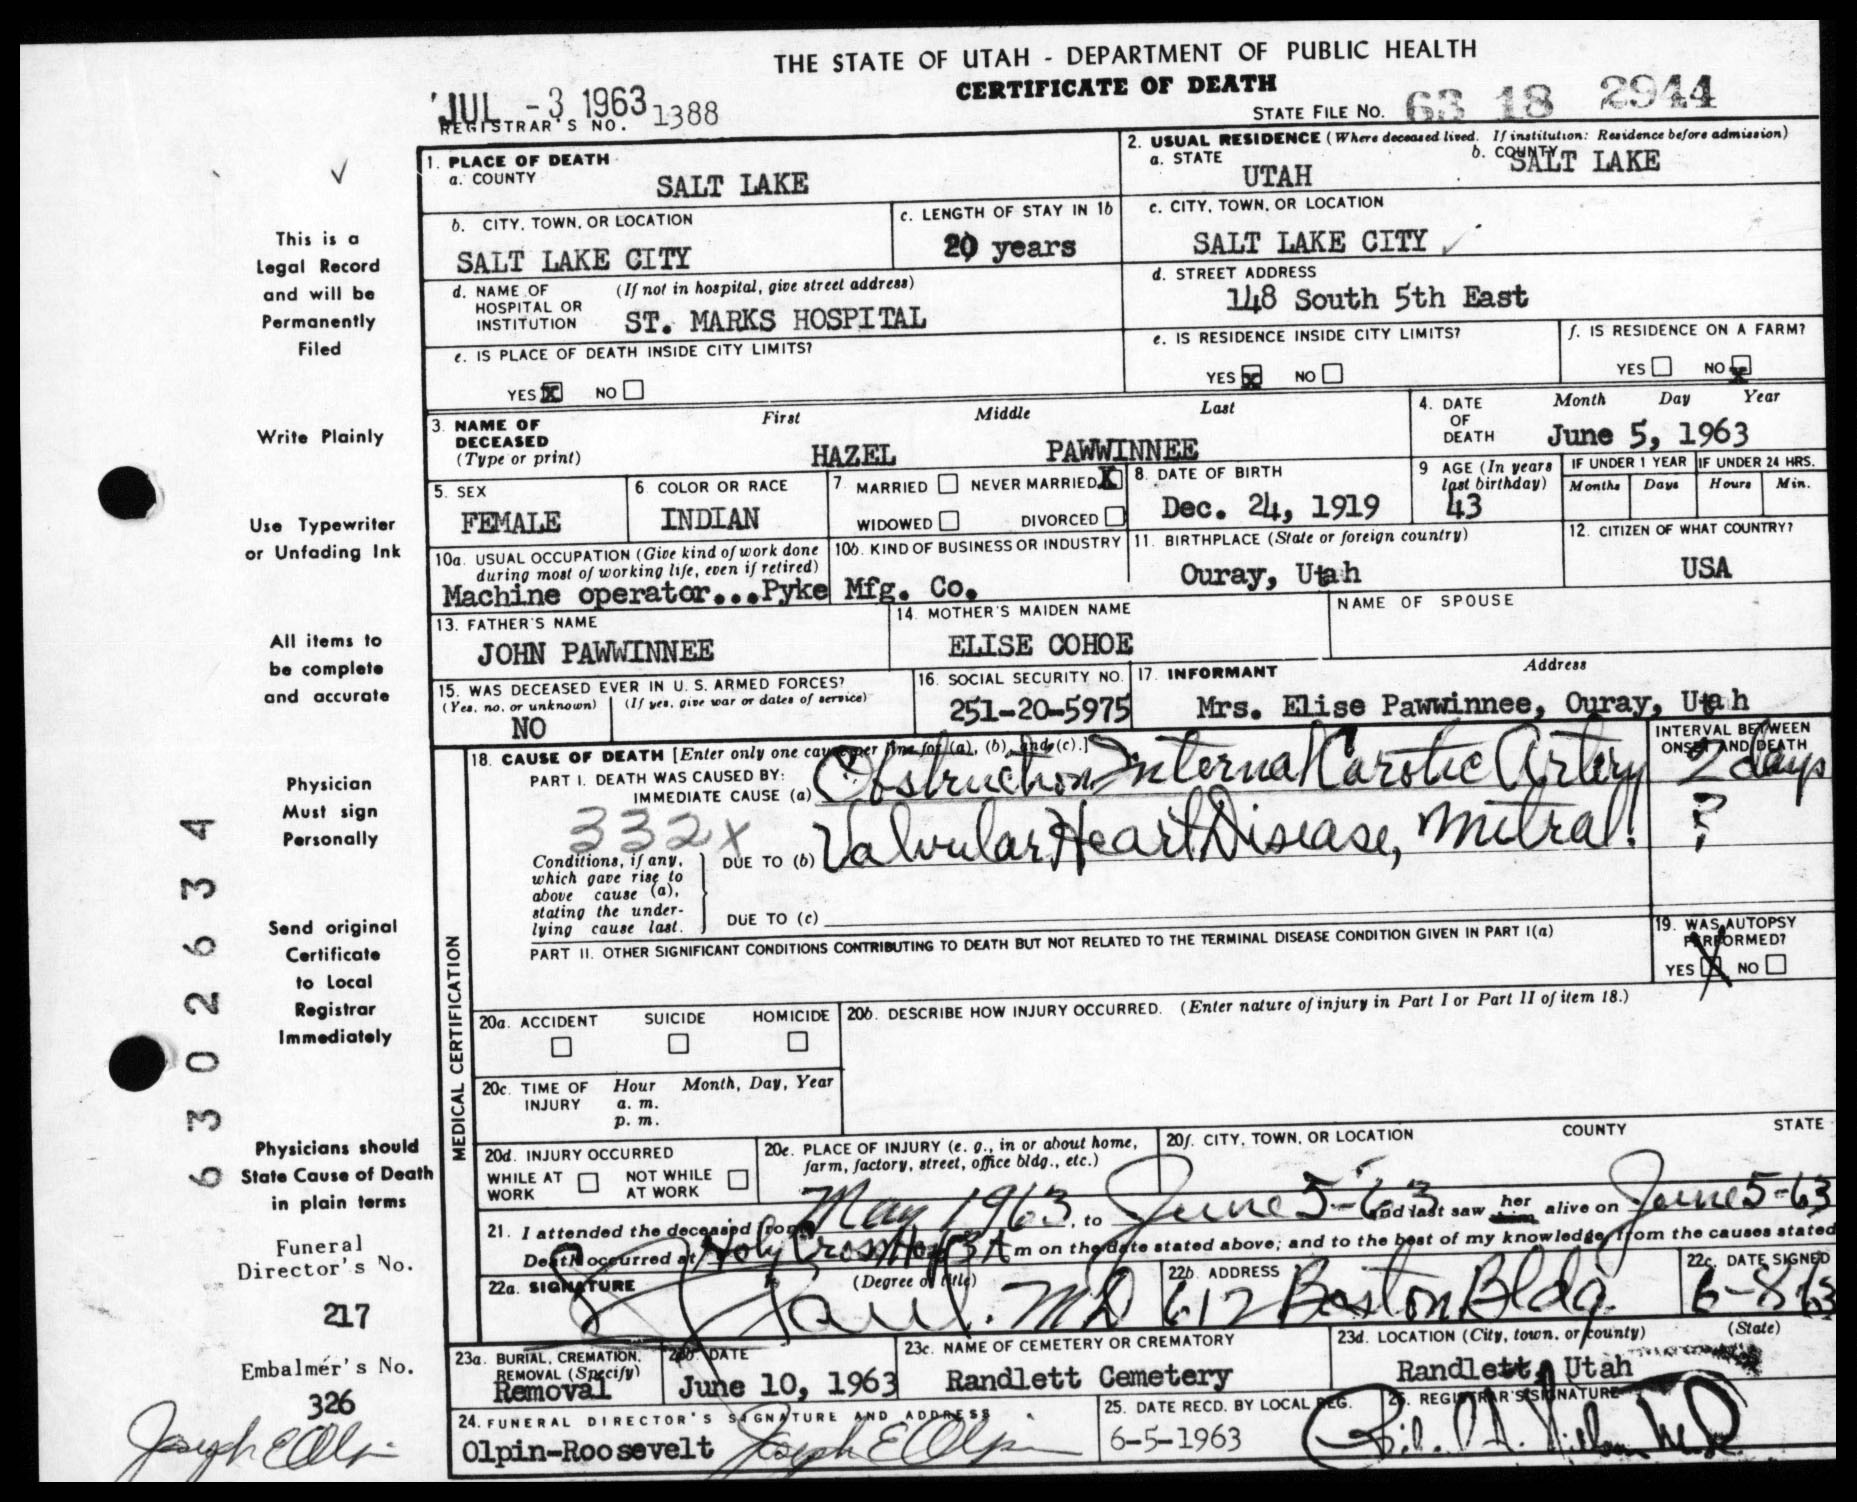 THE STATE OF UTAH - DEPARTMENT OF PUBLIC HEALTH
CERTIFICATE OF DEATH
JUL -3 1963
REGISTRAR'S NO. 1388
STATE FILE NO. 63 18 2944
1. PLACE OF DEATH
a. COUNTY
SALT LAKE
2. USUAL RESIDENCE (Where deceased lived. If institution: Residence before admission)
a. STATE
UTAH
b. COUNTY
SALT LAKE
b. CITY, TOWN, OR LOCATION
SALT LAKE CITY
c. LENGTH OF STAY IN 1b
20 years
c. CITY, TOWN, OR LOCATION
SALT LAKE CITY
d. NAME OF HOSPITAL OR INSTITUTION
(If not in hospital, give street address)
ST. MARKS HOSPITAL
d. STREET ADDRESS
148 South 5th East
e. IS PLACE OF DEATH INSIDE CITY LIMITS?
YES X NO
e. IS RESIDENCE INSIDE CITY LIMITS?
YES X NO
f. IS RESIDENCE ON A FARM?
YES NO X
3. NAME OF DECEASED
(Type or print)
First Middle Last
HAZEL PAWWINNEE
4. DATE OF DEATH
Month Day Year
June 5, 1963
5. SEX
FEMALE
6. COLOR OR RACE
INDIAN
7. MARRIED NEVER MARRIED X
WIDOWED DIVORCED
8. DATE OF BIRTH
Dec. 24, 1919
9 AGE (In years last birthday)
43
IF UNDER 1 YEAR
Months Days
IF UNDER 24 HRS.
Hours Min.
10a. USUAL OCCUPATION (Give kind of work done during most of working life, even if retired)
10b. KIND OF BUSINESS OR INDUSTRY
Machine operator...Pyke Mfg. Co.
11. BIRTHPLACE (State or foreign country)
Ouray, Utah
12. CITIZEN OF WHAT COUNTRY?
USA
13. FATHER'S NAME
JOHN PAWWINNEE
14. MOTHER'S MAIDEN NAME
ELISE COHOE
NAME OF SPOUSE
15. WAS DECEASED EVER IN U. S. ARMED FORCES?
(Yes, no, or unknown) (If yes, give war or dates of service)
NO
16. SOCIAL SECURITY NO.
251-20-5975
17. INFORMANT Address
Mrs. Elise Pawwinnee, Ouray, Utah
MEDICAL CERTIFICATION
18. CAUSE OF DEATH [Enter only one cause per line for (a), (b), and (c).]
INTERVAL BETWEEN ONSET AND DEATH
PART I. DEATH WAS CAUSED BY:
IMMEDIATE CAUSE (a) Obstruction Internal Carotic Artery 2 days
332X
Conditions, if any, which gave rise to above cause (a), stating the underlying cause last.
DUE TO (b) Valvular Heart Disease, Mitral. ?
DUE TO (c)
PART II. OTHER SIGNIFICANT CONDITIONS CONTRIBUTING TO DEATH BUT NOT RELATED TO THE TERMINAL DISEASE CONDITION GIVEN IN PART I(a)
19. WAS AUTOPSY PERFORMED?
YES X NO
20a. ACCIDENT SUICIDE HOMICIDE
20b. DESCRIBE HOW INJURY OCCURRED. (Enter nature of injury in Part I or Part II of item 18.)
20c. TIME OF INJURY
Hour Month, Day, Year
a. m.
p. m.
20d. INJURY OCCURRED
WHILE AT WORK NOT WHILE AT WORK
20e. PLACE OF INJURY (e. g., in or about home, farm, factory, street, office bldg., etc.)
20f. CITY, TOWN, OR LOCATION COUNTY STATE
21. I attended the deceased from May 1963, to June 5-63 and last saw her him alive on June 5-63
Death occurred at Holy Cross Hosp 3 A m on the date stated above; and to the best of my knowledge, from the causes stated
22a. SIGNATURE (Degree or title)
MD
22b. ADDRESS
612 Boston Bldg.
22c. DATE SIGNED
6-8-63
23a. BURIAL, CREMATION, REMOVAL (Specify)
Removal
23b. DATE
June 10, 1963
23c. NAME OF CEMETERY OR CREMATORY
Randlett Cemetery
23d. LOCATION (City, town, or county) (State)
Randlett, Utah
24. FUNERAL DIRECTOR'S SIGNATURE AND ADDRESS
Olpin-Roosevelt Joseph E Olpin
25. DATE RECD. BY LOCAL REG.
6-5-1963
26. REGISTRAR'S SIGNATURE
This is a
Legal Record
and will be
Permanently
Filed
Write Plainly
Use Typewriter
or Unfading Ink
All items to
be complete
and accurate
Physician
Must sign
Personally
Send original
Certificate
to Local
Registrar
Immediately
Physicians should
State Cause of Death
in plain terms
Funeral
Director's No.
217
Embalmer's No.
326
Joseph E Olpin
6302634